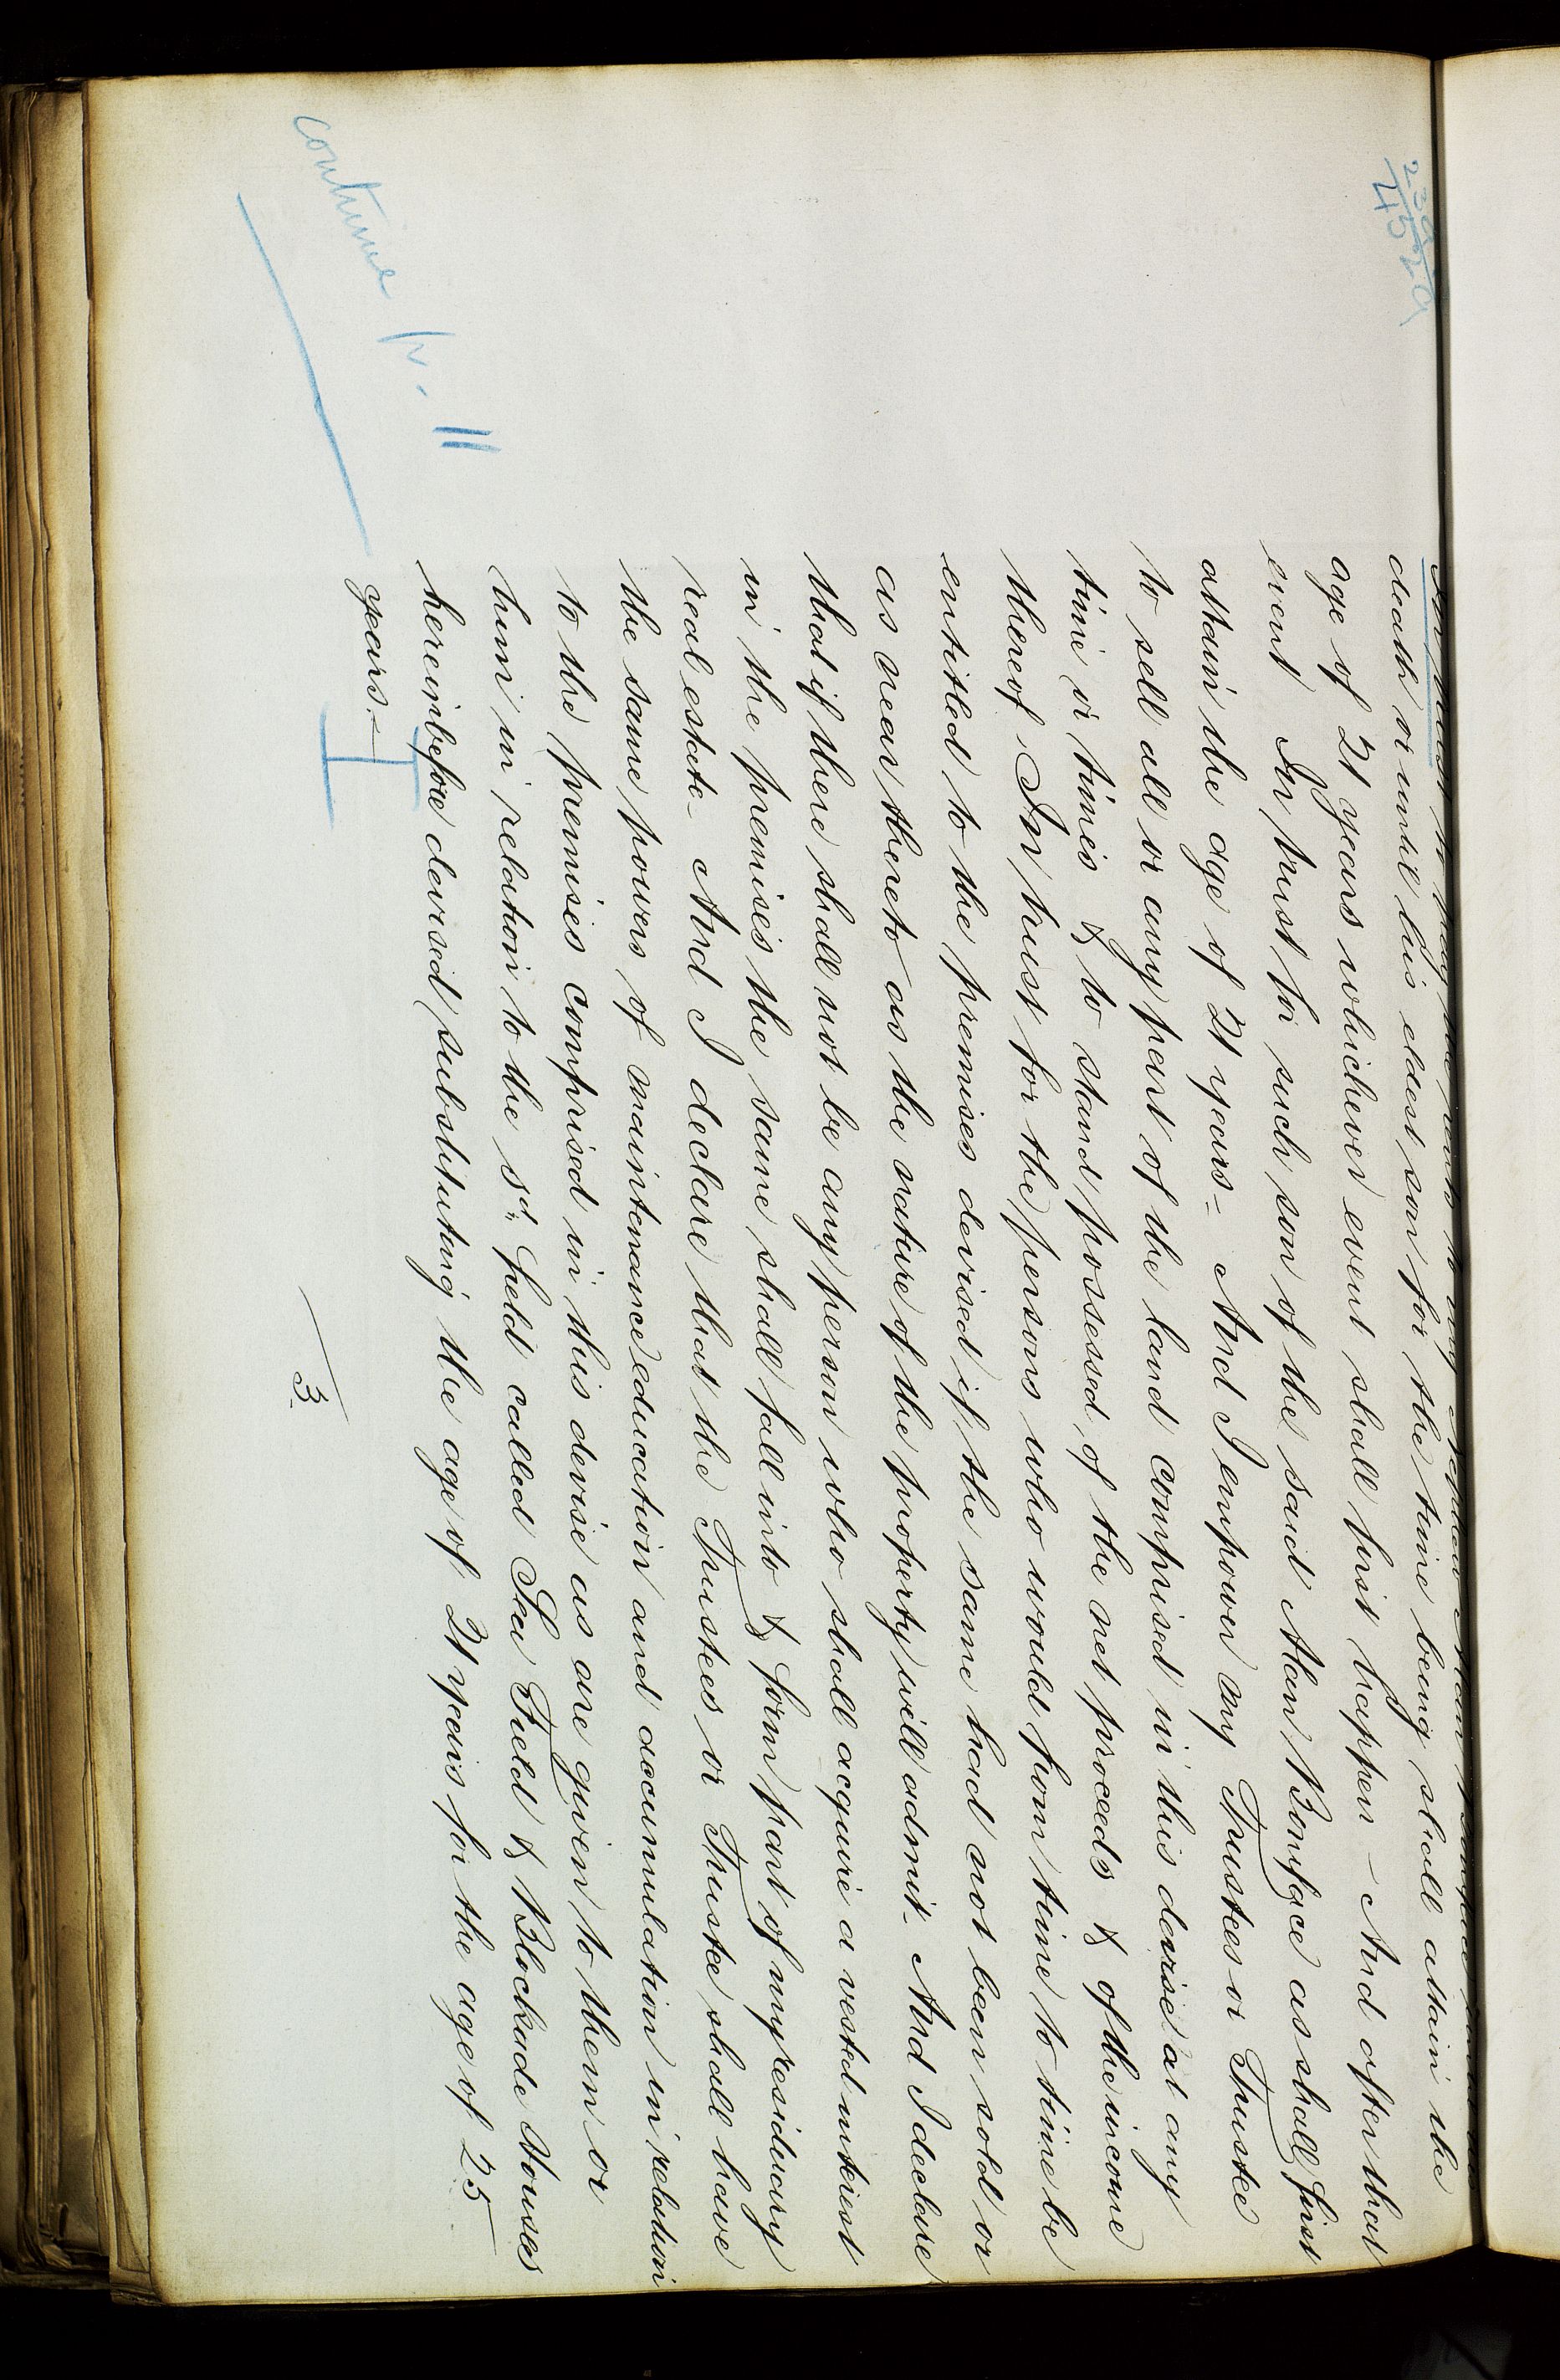 death or until his eldest son for the time being shall attain the
age of 21 years whichever event shall first happen – And after that
event In trust for such son of the said Alan Bonyface as shall first
attain the age of 21 years – And I empower my Trustees or Trustee
to sell all or any part of the land comprised in this devise at any
time or times & to stand possessed of the net proceeds & of the income
thereof In trust for the persons who would from time to time be
entitled to the premises devised if the same had not been sold or
as near thereto as the nature of the property will admit – And I declare
that if there shall not be any person who shall acquire a vested interest
in the premises the same shall fall into & form part of my residuary
real estate – And I declare that the Trustees or Trustee shall have
the same powers of maintenance education and accumulation in relation
to the premises comprised in this devise as are given to them or
him in relation to the sd. field called Sea Field & Blockade Houses
hereinbefore devised substituting the age of 21 years for the age of 25
years. –
3
continue p. 11